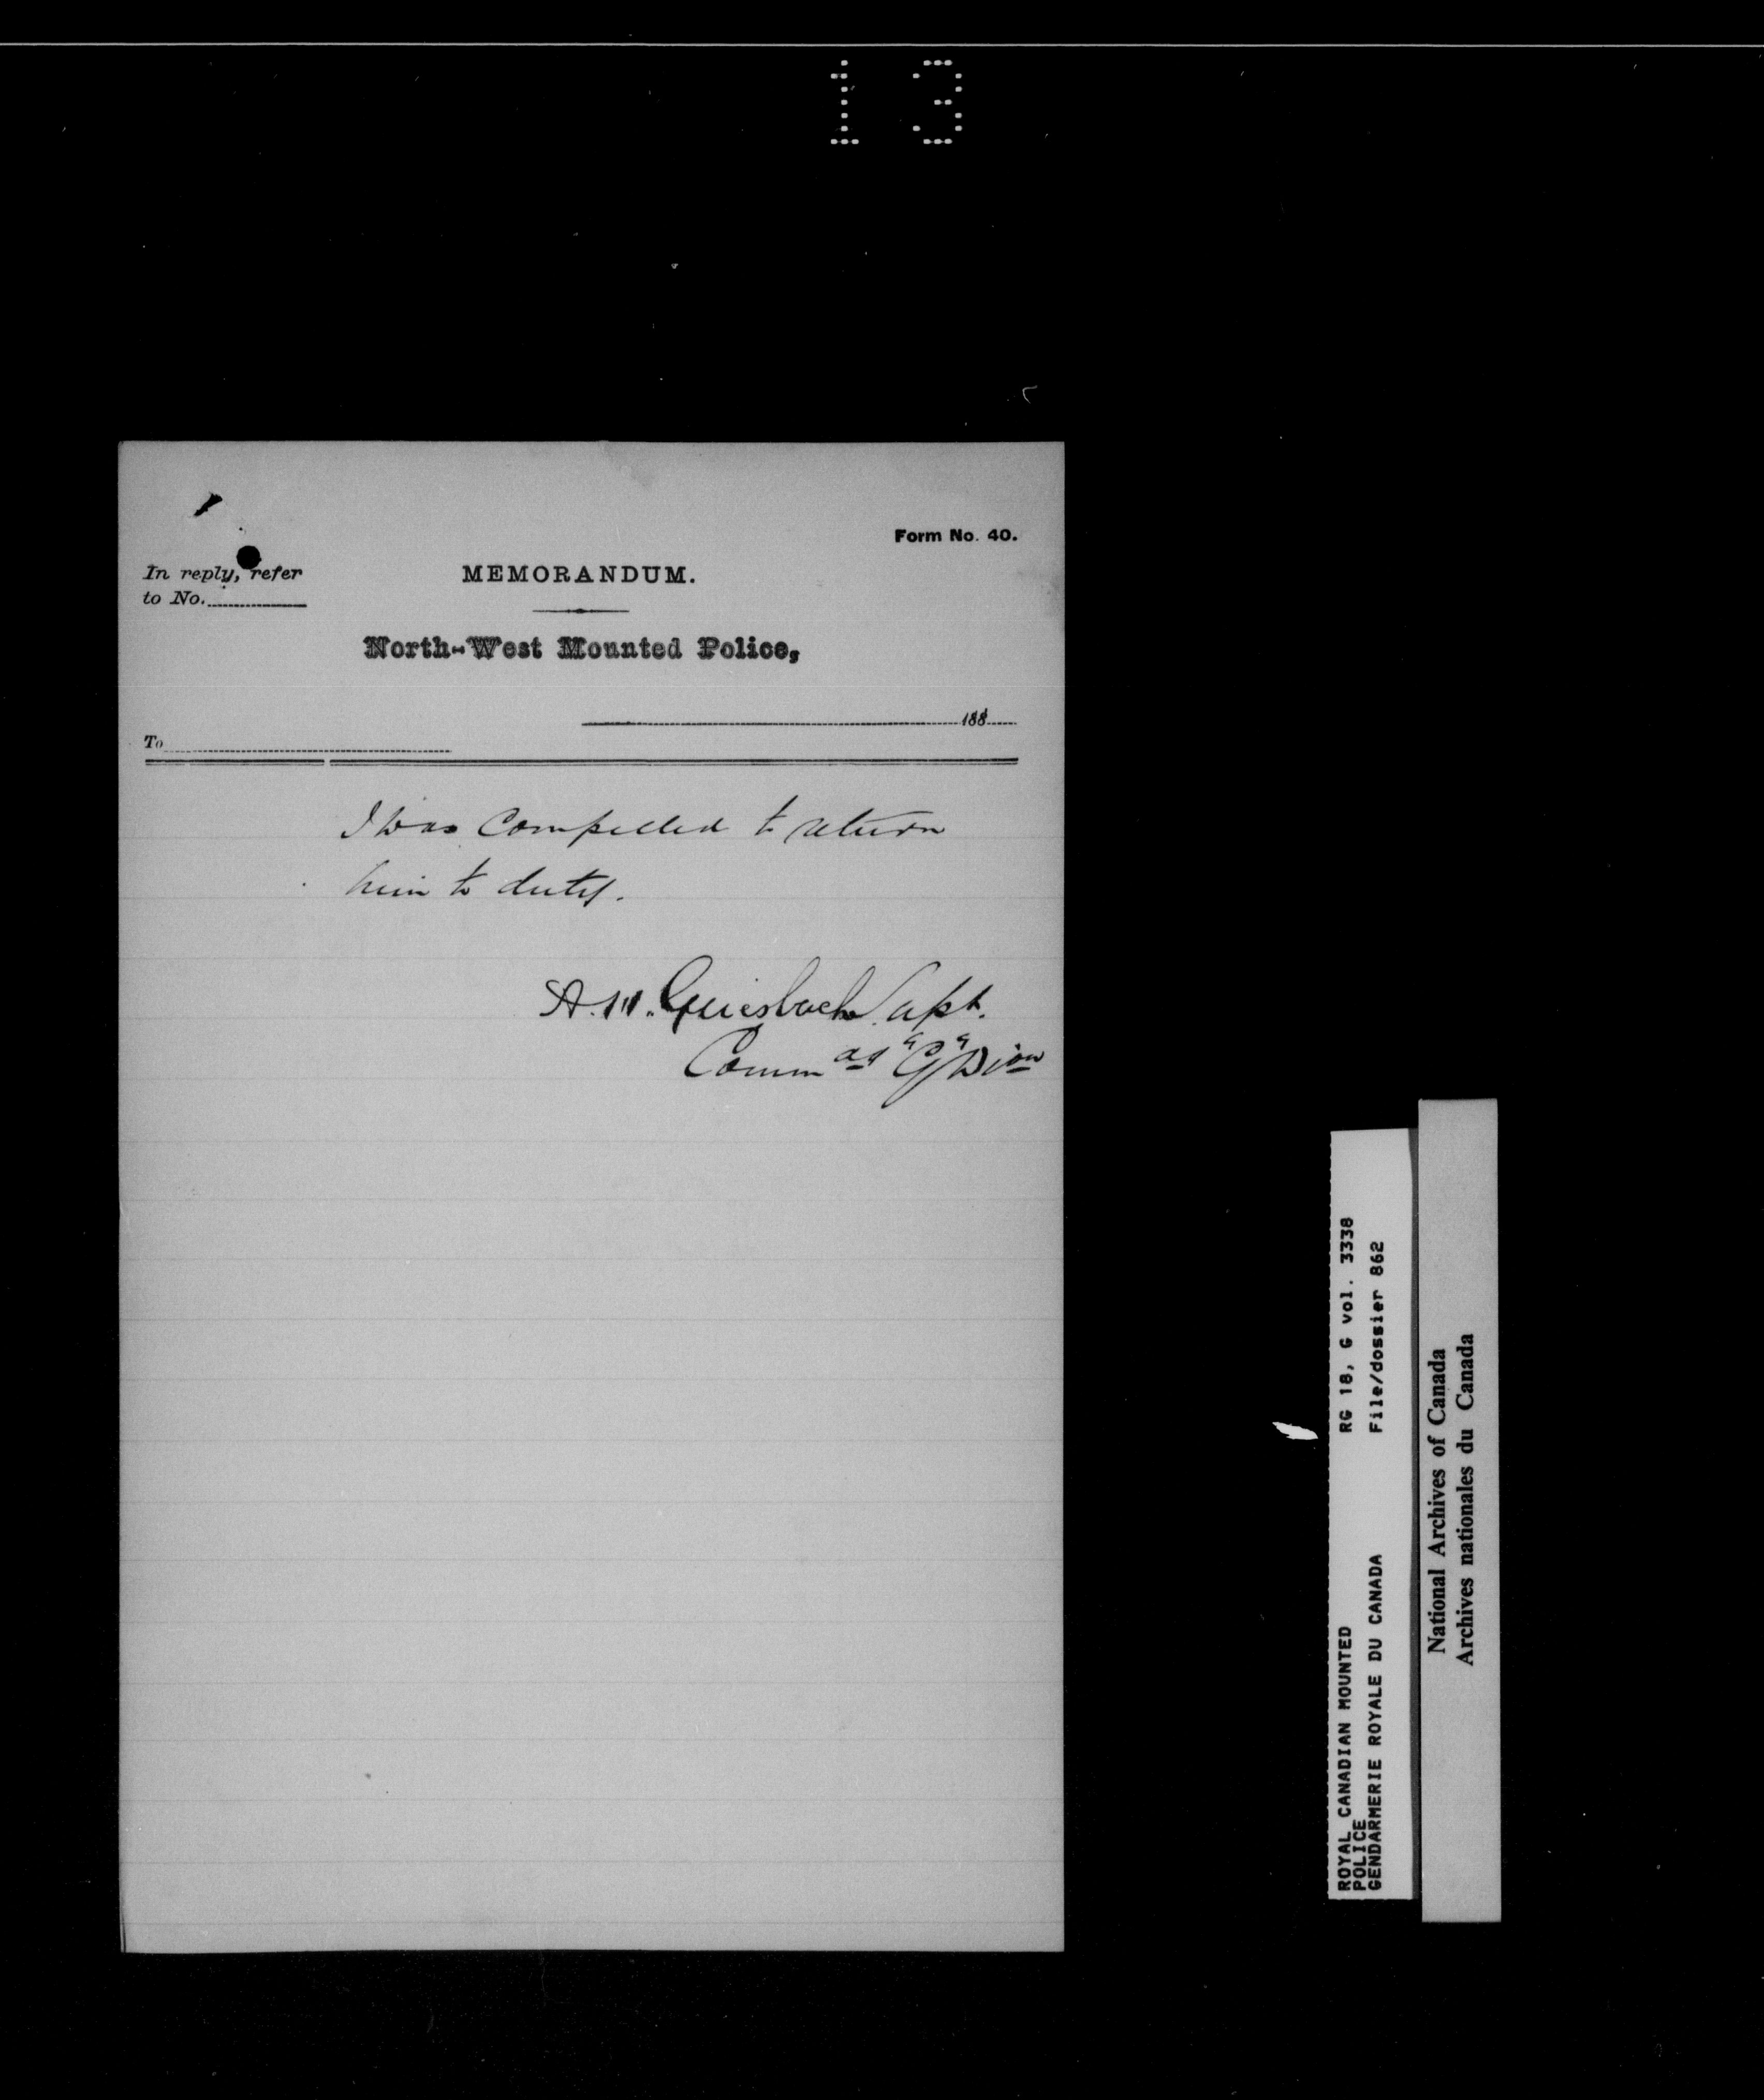 13
Form No. 40.
In reply, refer
to No.
MEMORANDUM.
North-West Mounted Police,
188
To
I was compelled to return
him to duty.
A.H. Griesbach Capt.
Commdg "G" Dion
RG 18, G vol. 3338
File/dossier 862
ROYAL CANADIAN MOUNTED
POLICE
GENDARMERIE ROYALE DU CANADA
National Archives of Canada
Archives nationales du Canada